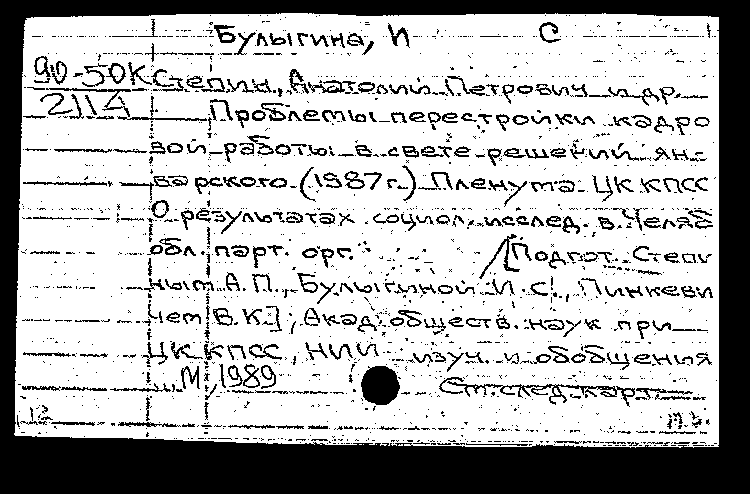 Булыгина, И С
90-50К Степин, Анатолий Петрович и др.
2114 Проблемы перестройки кадро
вой работы в свете решений ян-
варского (1987г.) Пленума ЦК КПСС
О результатах социол. исслед. в Челяб
обл. парт. орг. [Подгот. Степи
ным А.П., Булыгиной И.С., Пинкеви
чем В.К.]; Акад. обществ. наук при
ЦК КПСС, НИИ изуч. и обобщения
... М, 1989 См. след. карт.
12